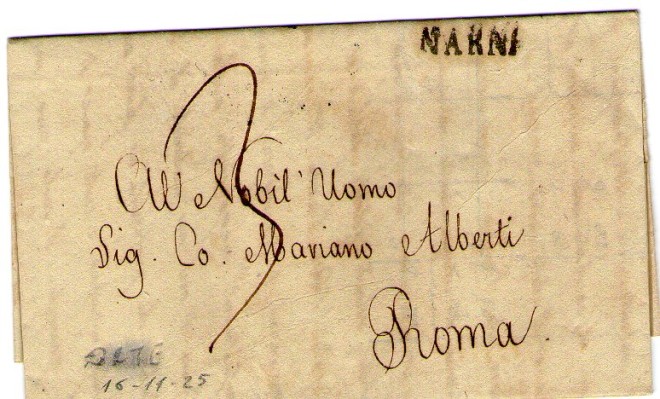 NARNI
3
All Nobil' Uomo
Sig. Co. Mariano Alberti
Roma.
16-11-25